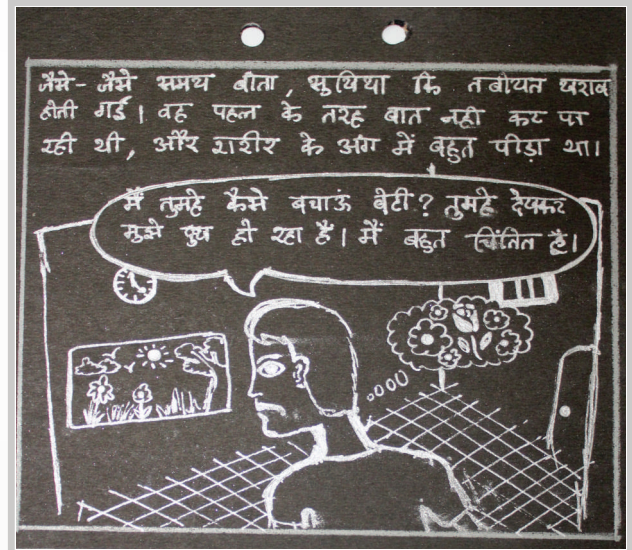 जैसे-जैसे समय बीता, सुखिया कि तबीयत खराब
होती गई। वह पहल के तरह बात नही कर पा
रही थी, और शरीर के अंग में बहुत पीड़ा था।
मैं तुमहे कैसे बचाऊं बेटी? तुमहे देखकर
मुझे दुख हो रहा है। मैं बहुत चिंतित है।